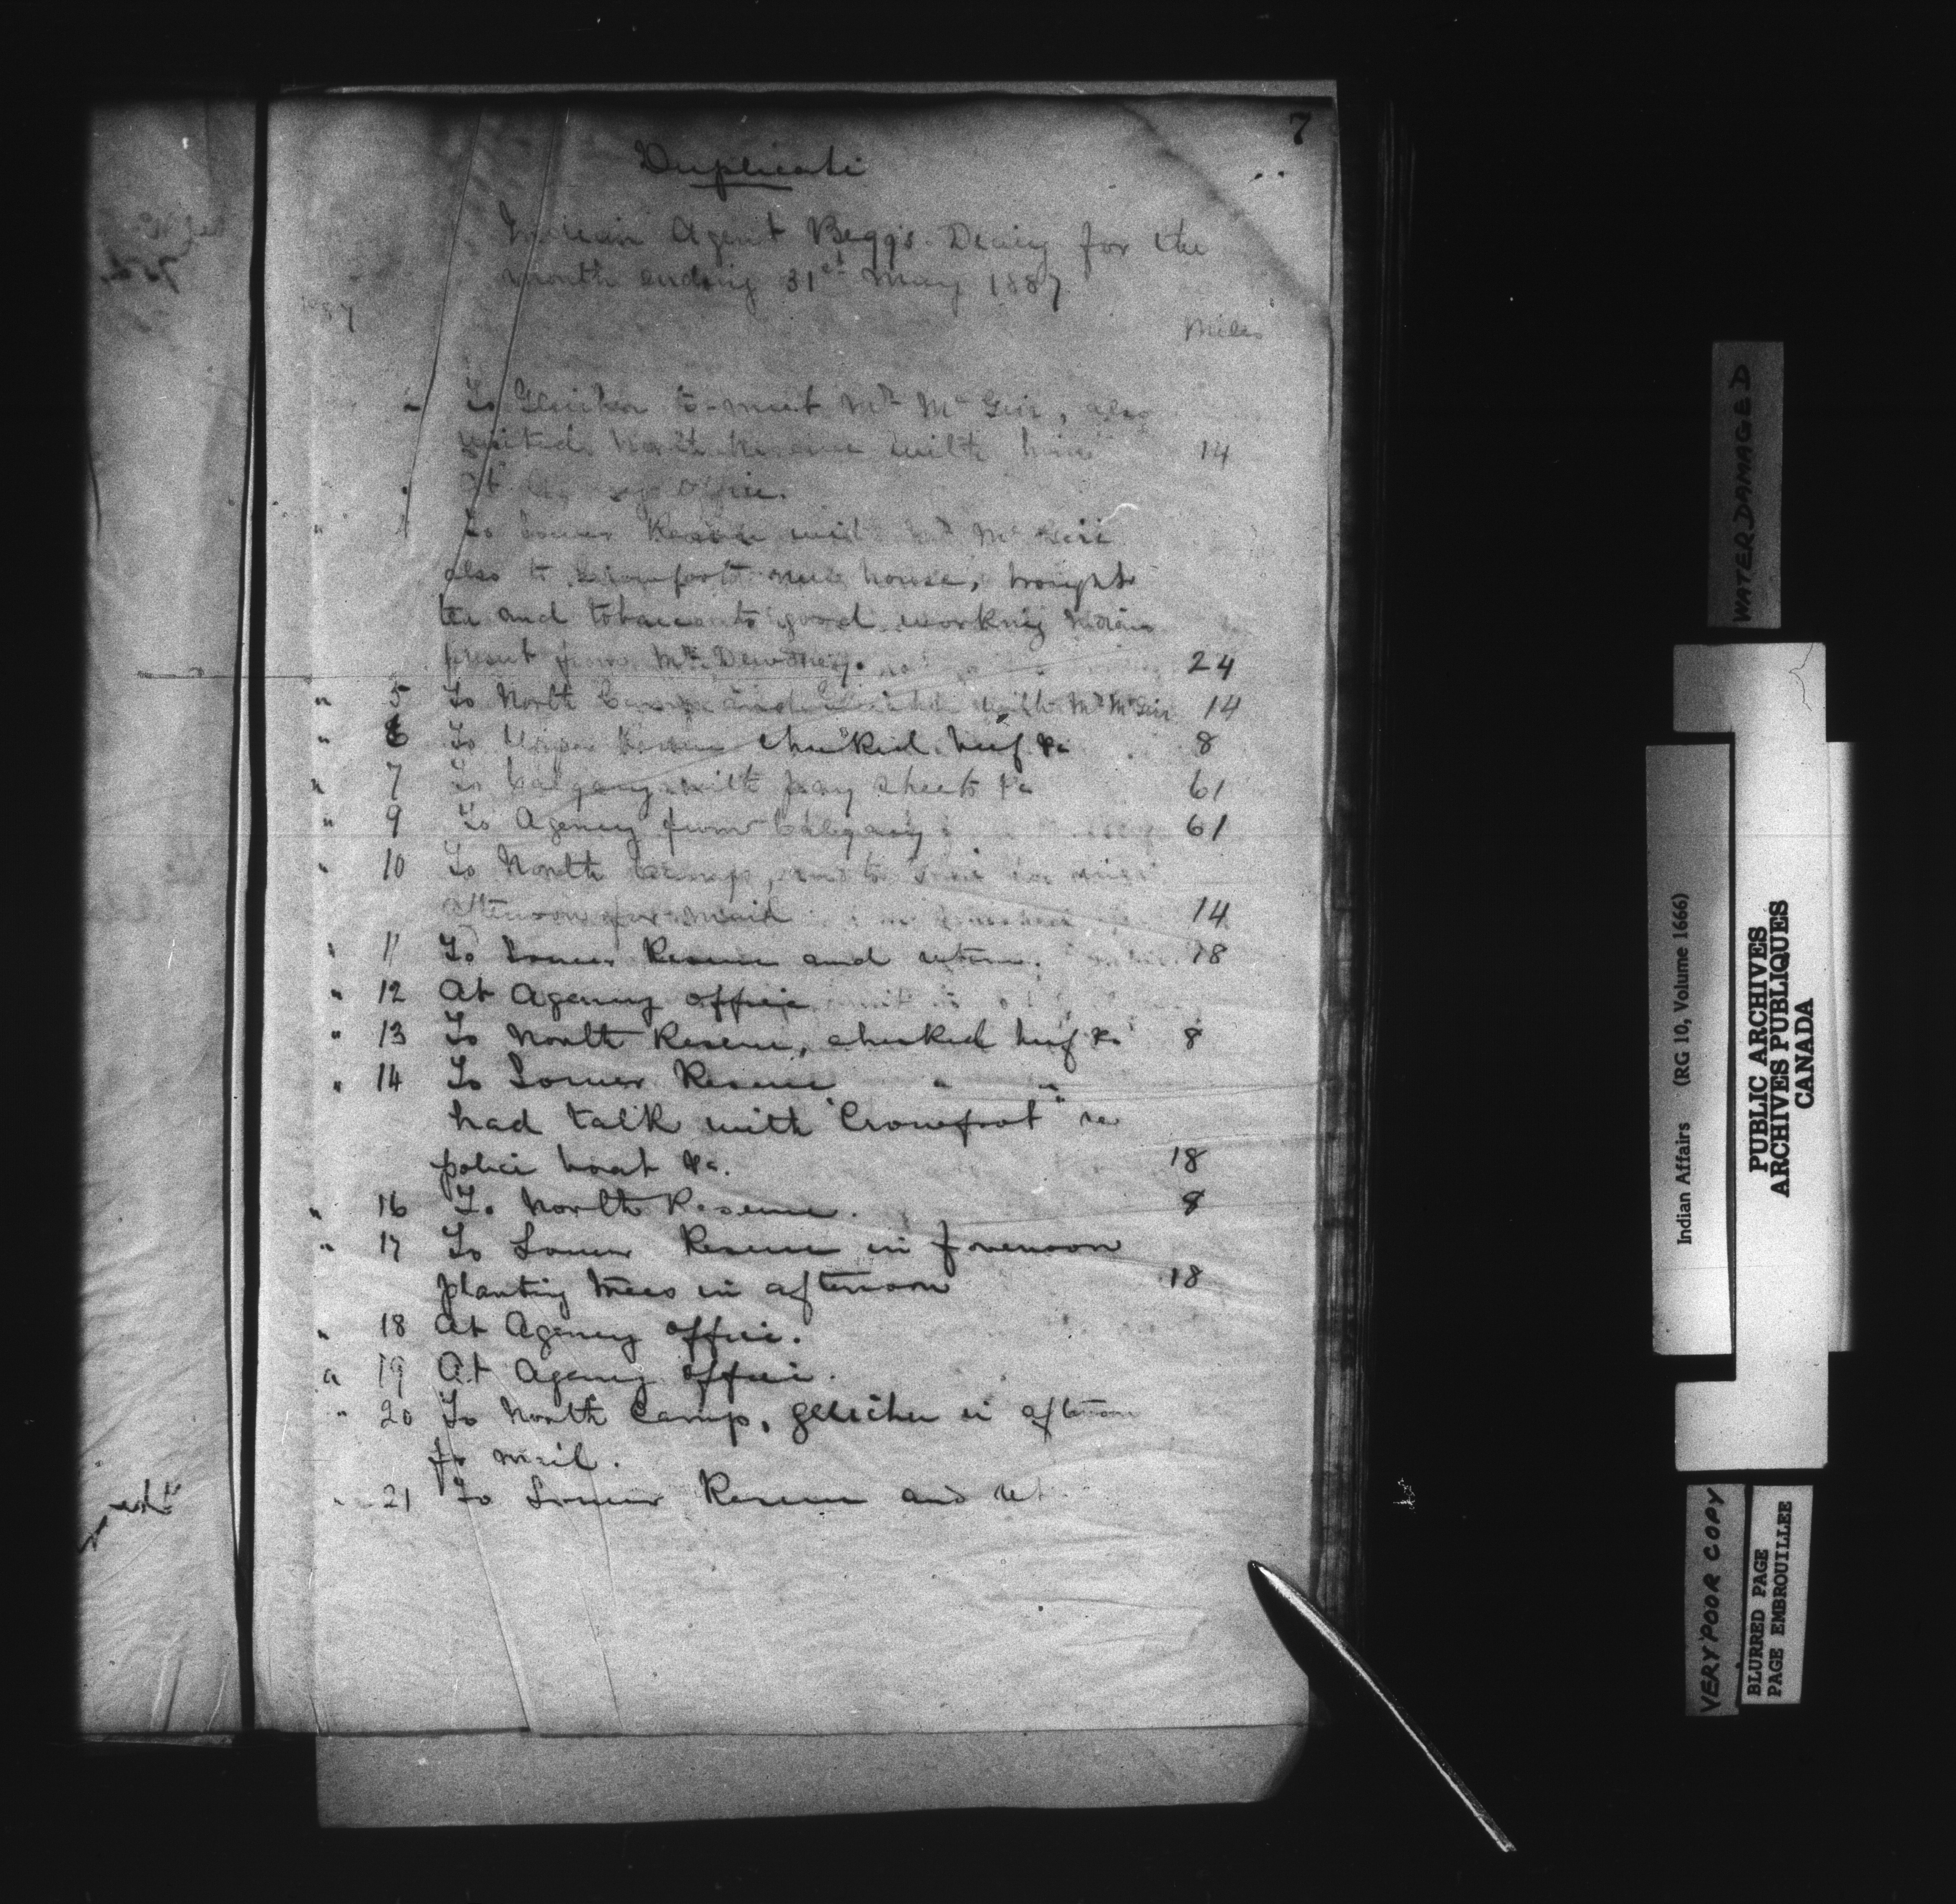 7
Duplicate
Indian Agent Begg's Diary for the
month ending 31st May 1887
Miles
To Gleichen to meet Mr McGirr, also
visited North Reserve with him 14
At Agency Office.
To Lower Reserve with Mr McGirr
also to Crowfoot's new house, brought
tea and tobacco to good working Indians
present from Mr Dewdney. 24
" 5 To North Camp and Gleichen with Mr McGirr 14
" 6 To Upper Reserve checked beef &c 8
" 7 To Calgary with pay sheets &c 61
" 9 To Agency from Calgary 61
" 10 To North Camp, and to
afternoon for mail 14
" 11 To Lower Reserve and return. 18
" 12 At Agency office
" 13 To North Reserve, checked beef &c 8
" 14 To Lower Reserve " "
had talk with "Crowfoot" re
police boat &c. 18
" 16 To North Reserve. 8
" 17 To Lower Reserve in forenoon
planting trees in afternoon 18
" 18 At Agency office.
" 19 At Agency office.
" 20 To North Camp, Gleichen in afternoon
for mail.
" 21 To Lower Reserve and ret
WATERDAMAGED
Indian Affairs (RG 10, Volume 1666)
PUBLIC ARCHIVES
ARCHIVES PUBLIQUES
CANADA
VERY POOR COPY
BLURRED PAGE
PAGE EMBROUILLEE